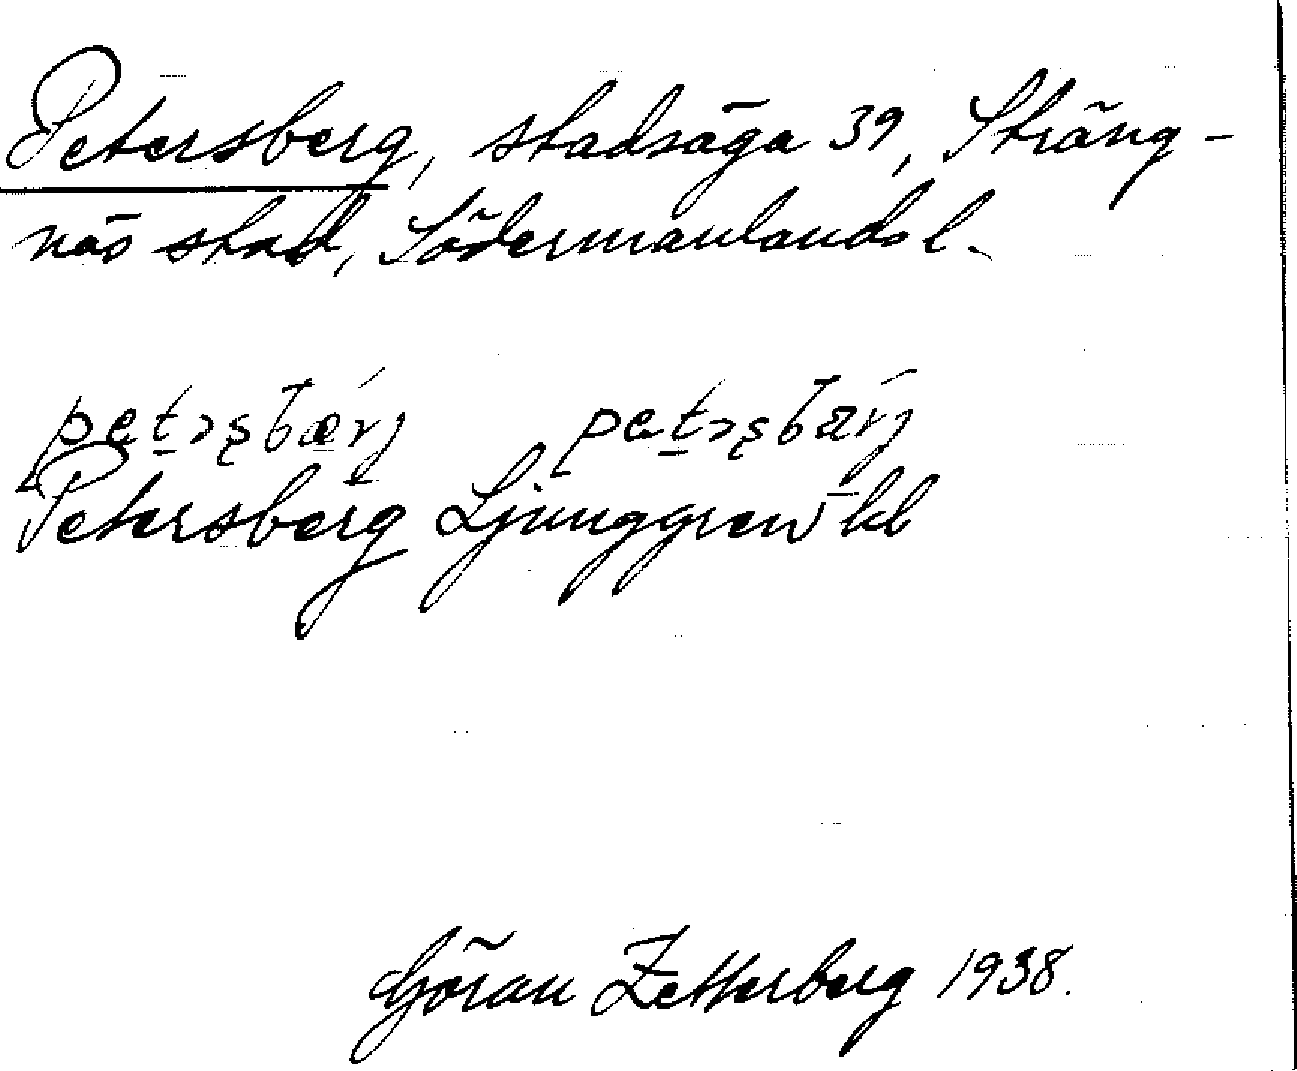 Petersberg, stadsäga 39, Sträng-
näs stad, Södermanlands l.
Petersberg Ljunggren kb
Göran Zetterberg 1938.